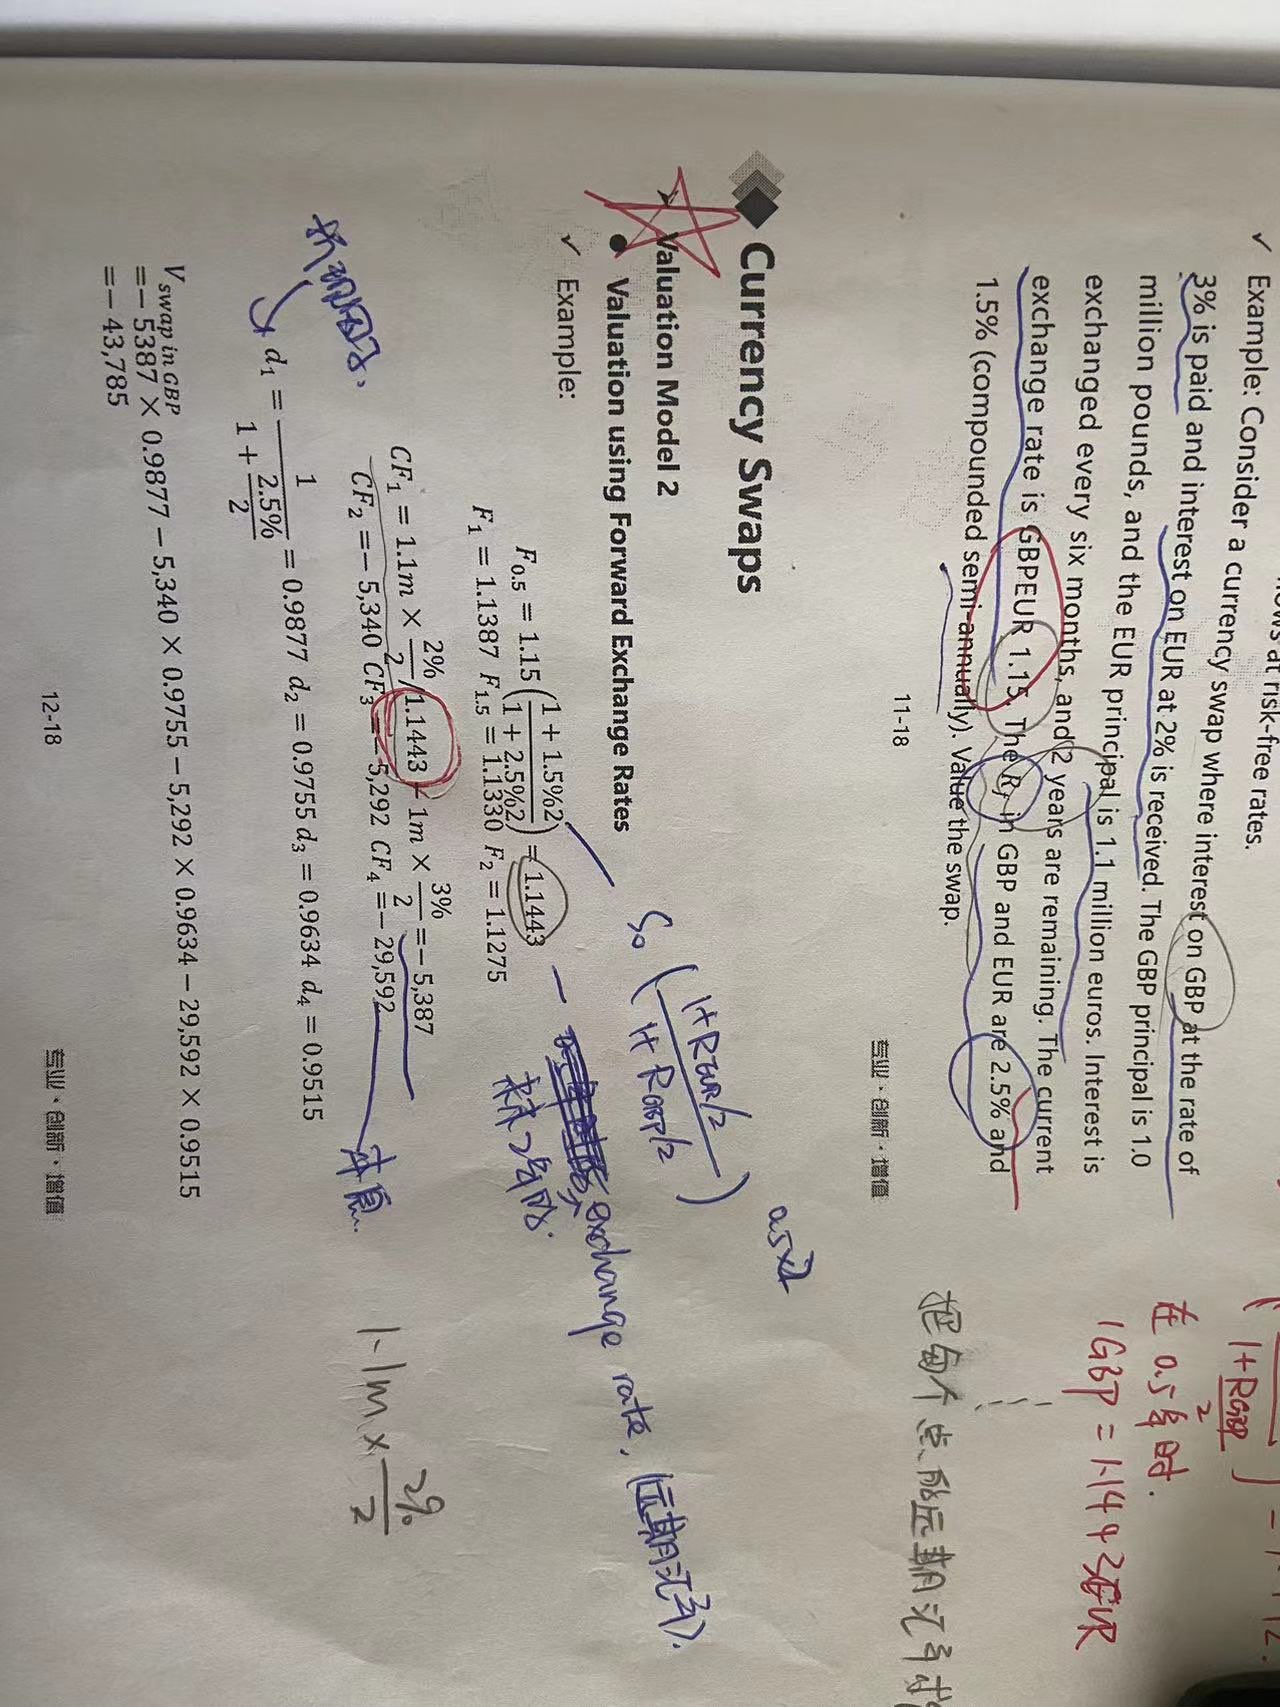 ws at risk-free rates.
✓ Example: Consider a currency swap where interest on GBP at the rate of
3% is paid and interest on EUR at 2% is received. The GBP principal is 1.0
million pounds, and the EUR principal is 1.1 million euros. Interest is
exchanged every six months, and 2 years are remaining. The current
exchange rate is GBPEUR 1.15. The R_f in GBP and EUR are 2.5% and
1.5% (compounded semi-annually). Value the swap.
11-18
专业·创新·增值
1+R_GBP/2
在 0.5年时.
1GBP = 1.1443EUR
把每个点的远期汇率
Currency Swaps
0.5×1
Valuation Model 2
● Valuation using Forward Exchange Rates
S_0 ( (1+R_EUR/2) / (1+R_GBP/2) )
✓ Example:
F_0.5 = 1.15 ( (1 + 1.5%2) / (1 + 2.5%2) ) = 1.1443
exchange rate. (远期汇率).
F_1 = 1.1387 F_1.5 = 1.1330 F_2 = 1.1275
CF_1 = 1.1m × 2%/2 /1.1443 − 1m × 3%/2 = − 5,387
CF_2 = − 5,340 CF_3 = − 5,292 CF_4 = − 29,592
本息.
1.1m × 2%/2
d_1 = 1 / (1 + 2.5%/2) = 0.9877 d_2 = 0.9755 d_3 = 0.9634 d_4 = 0.9515
V_swap in GBP
= − 5387 × 0.9877 − 5,340 × 0.9755 − 5,292 × 0.9634 − 29,592 × 0.9515
= − 43,785
12-18
专业·创新·增值